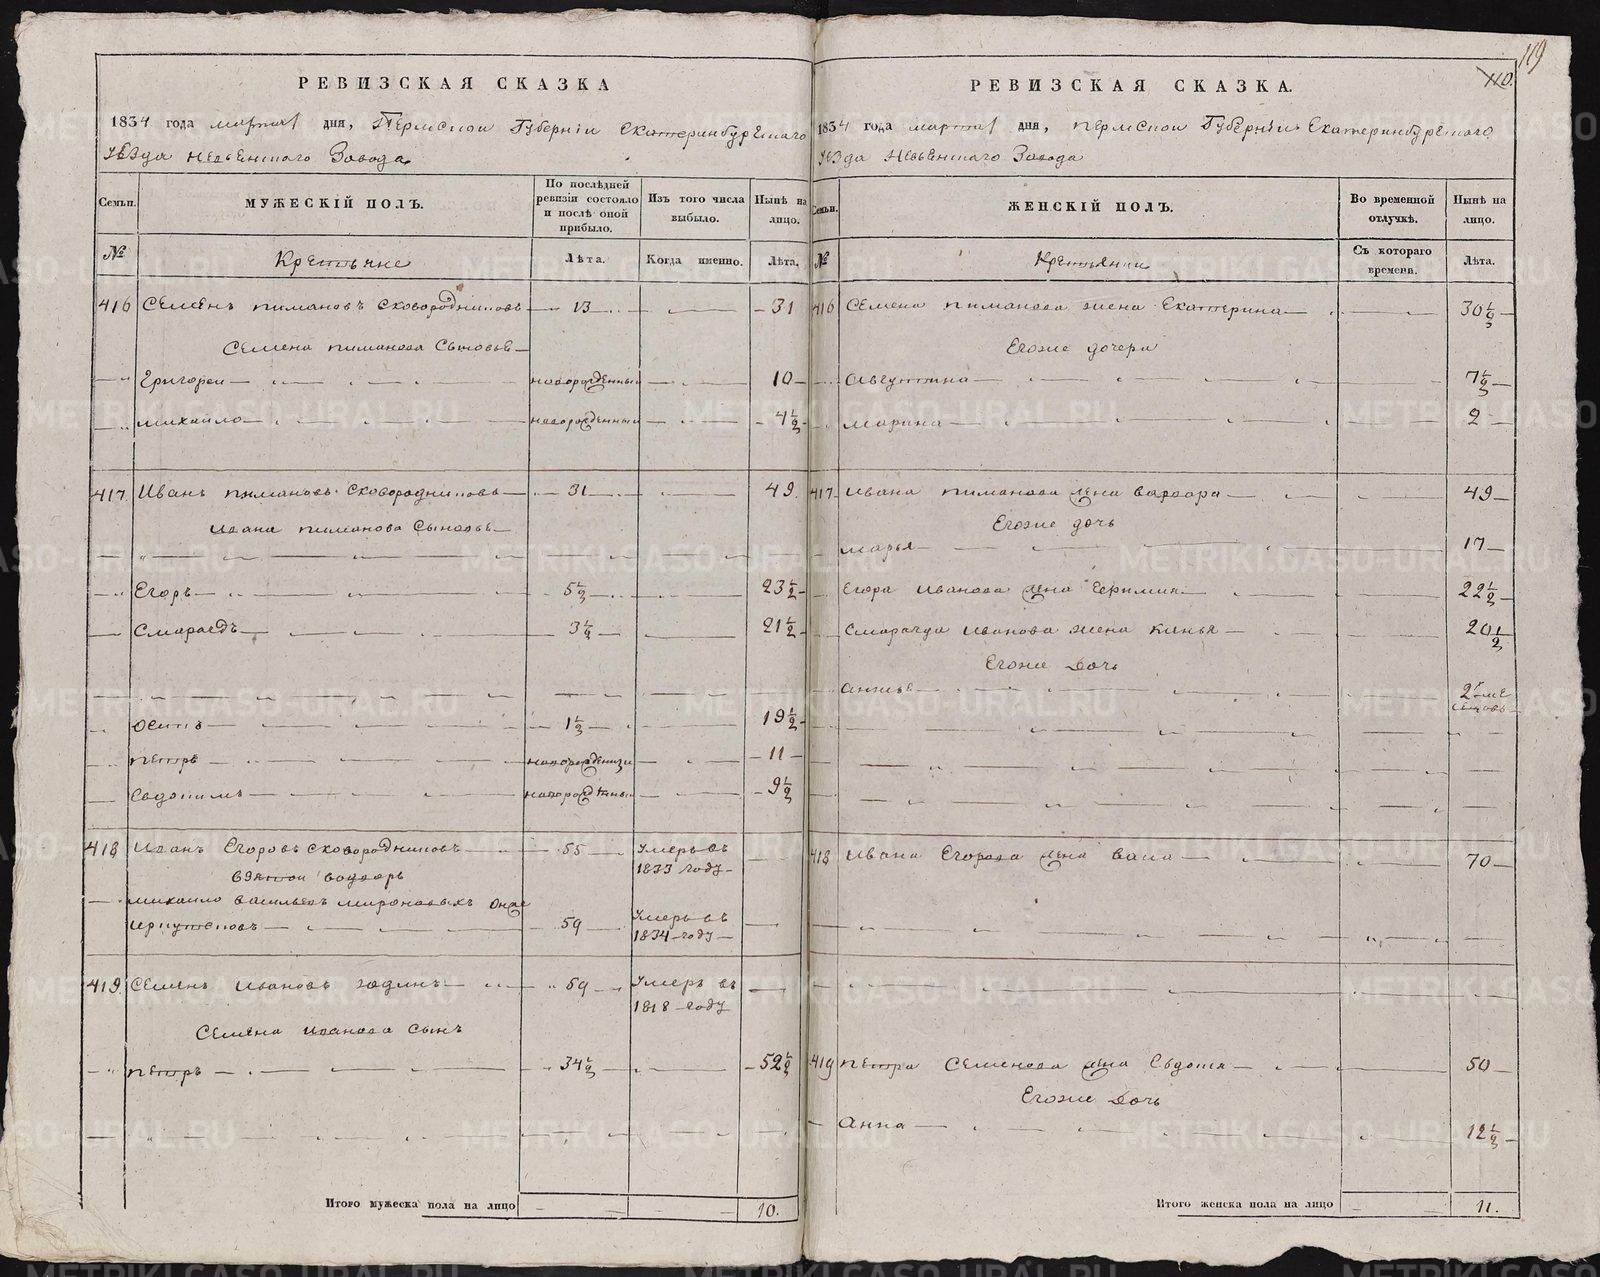 119
110.
РЕВИЗСКАЯ СКАЗКА
1834 года марта 1 дня, Пермской Губернiи Екатеринбургскаго
уѣзда Невьенскаго Завода
Семьи. МУЖЕСКIЙ ПОЛЪ. По послѣдней ревизiи состояло и послѣ оной прибыло. Изъ того числа выбыло. Нынѣ на лицо.
№ Крестьяне Лѣта. Когда именно. Лѣта.
416 Семенъ Пимановъ Сковородниковъ 13 31
Семена Пиманова Сыновье
Григореи новорожденный 10
Михайло новорожденный 4½
417 Иванъ Пимановъ Сковородниковъ 31 49
Ивана Пиманова Сыновье
Егоръ 5½ 23½
Смарагдъ 3½ 21½
Осипъ 1½ 19½
Петръ новорожденный 11
Евдокимъ новорожденный 9½
418 Иванъ Егоровъ Сковородниковъ 55 Умеръ въ 1833 году
взятой
Михайло Васильевъ Мироновыхъ Онже
59 Умеръ въ 1834 году
419 Семенъ Ивановъ 59 Умеръ въ 1818 году
Семена Иванова Сынъ
Петръ 34½ 52½
Итого мужеска пола на лицо 10.
РЕВИЗСКАЯ СКАЗКА.
1834 года марта 1 дня, Пермской Губернiи Екатеринбургскаго
уѣзда Невьенскаго Завода
Семьи. ЖЕНСКIЙ ПОЛЪ. Во временной отлучкѣ. Нынѣ на лицо.
№ Крестьянки Съ котораго времени. Лѣта.
416 Семена Пиманова жена Екатерина 30½
Егоже дочери
Августина 7½
Марина 2
417 Ивана Пиманова жена Варвара 49
Егоже дочь
Марья 17
Егора Иванова жена 22½
Смарагда Иванова жена 20½
Егоже Дочь
2
418 Ивана Егорова жена 70
419 Петра Семенова жена Евдотья 50
Егоже Дочь
Анна 12½
Итого женска пола на лицо 11.
METRIKI.GASO-URAL.RU